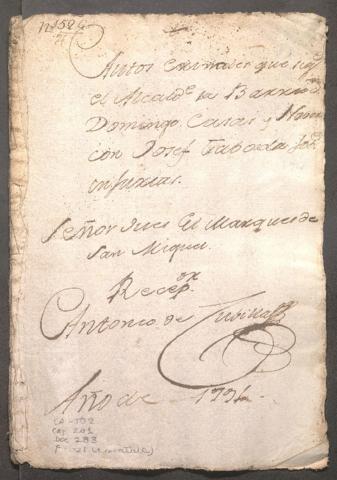 Autos criminales que sigue
el Alcalde de Barrio Dn
Domingo Casas y
con Josef Taboada sobre
injurias.
Señor Juez El Marques de
San Miguel
Recepor
Antonio de Tubilla
Año de 1794
CA-102
Caj 201
Doc 283